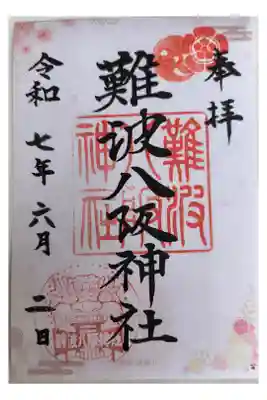 奉拝
難波八阪神社
難波八阪神社
令和七年六月二日